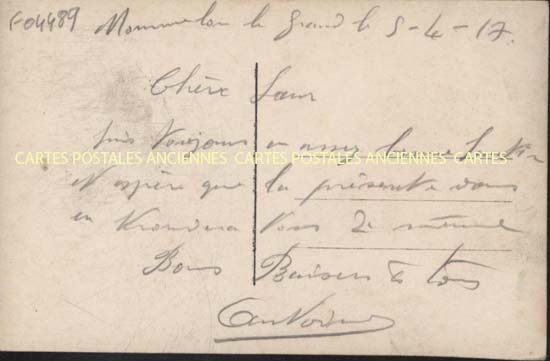 F04489
Mourmelon le Grand le 5-4-17.
Chère Sœur
suis toujours en assez bonne
CARTES POSTALES ANCIENNES CARTES POSTALES ANCIENNES CARTES POSTALES ANCIENNES
et espère que la présente vous
en trouvera tous de même
Bons Baisers à tous
Antoine